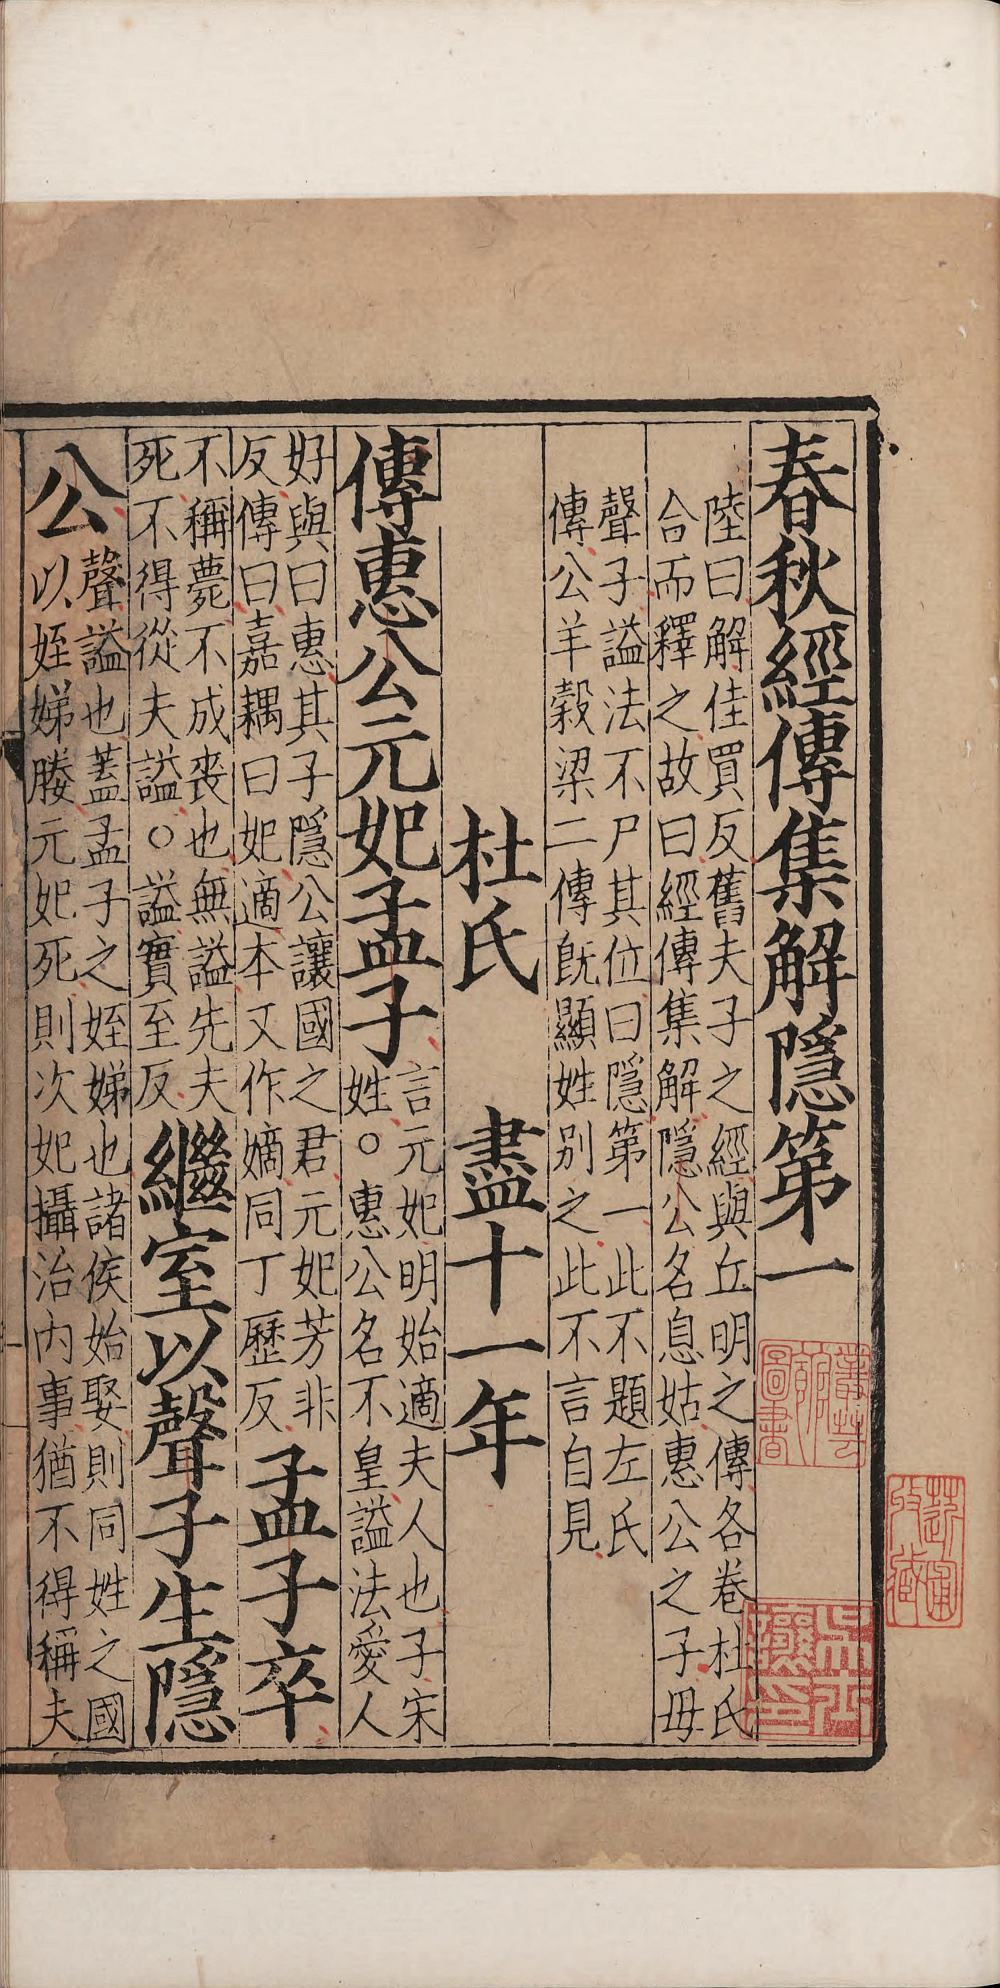 春秋經傳集解隱第一
陸曰解佳買反舊夫子之經與丘明之傳各卷杜氏
合而釋之故曰經傳集解隱公名息姑惠公之子母
聲子謚法不尸其位曰隱第一此不題左氏
傳公羊穀梁二傳既顯姓别之此不言自見
杜氏 盡十一年
傳惠公元妃孟子
言元妃明始適夫人也子宋
姓○惠公名不皇謚法愛人
好與曰惠其子隱公讓國之君元妃芳非
反傳曰嘉耦曰妃適本又作嫡同丁歷反
孟子卒
不稱薨不成喪也無謚先夫
死不得從夫謚○謚實至反
繼室以聲子生隱
公
聲謚也蓋孟子之姪娣也諸侯始娶則同姓之國
以姪娣媵元妃死則次妃攝治内事猶不得稱夫